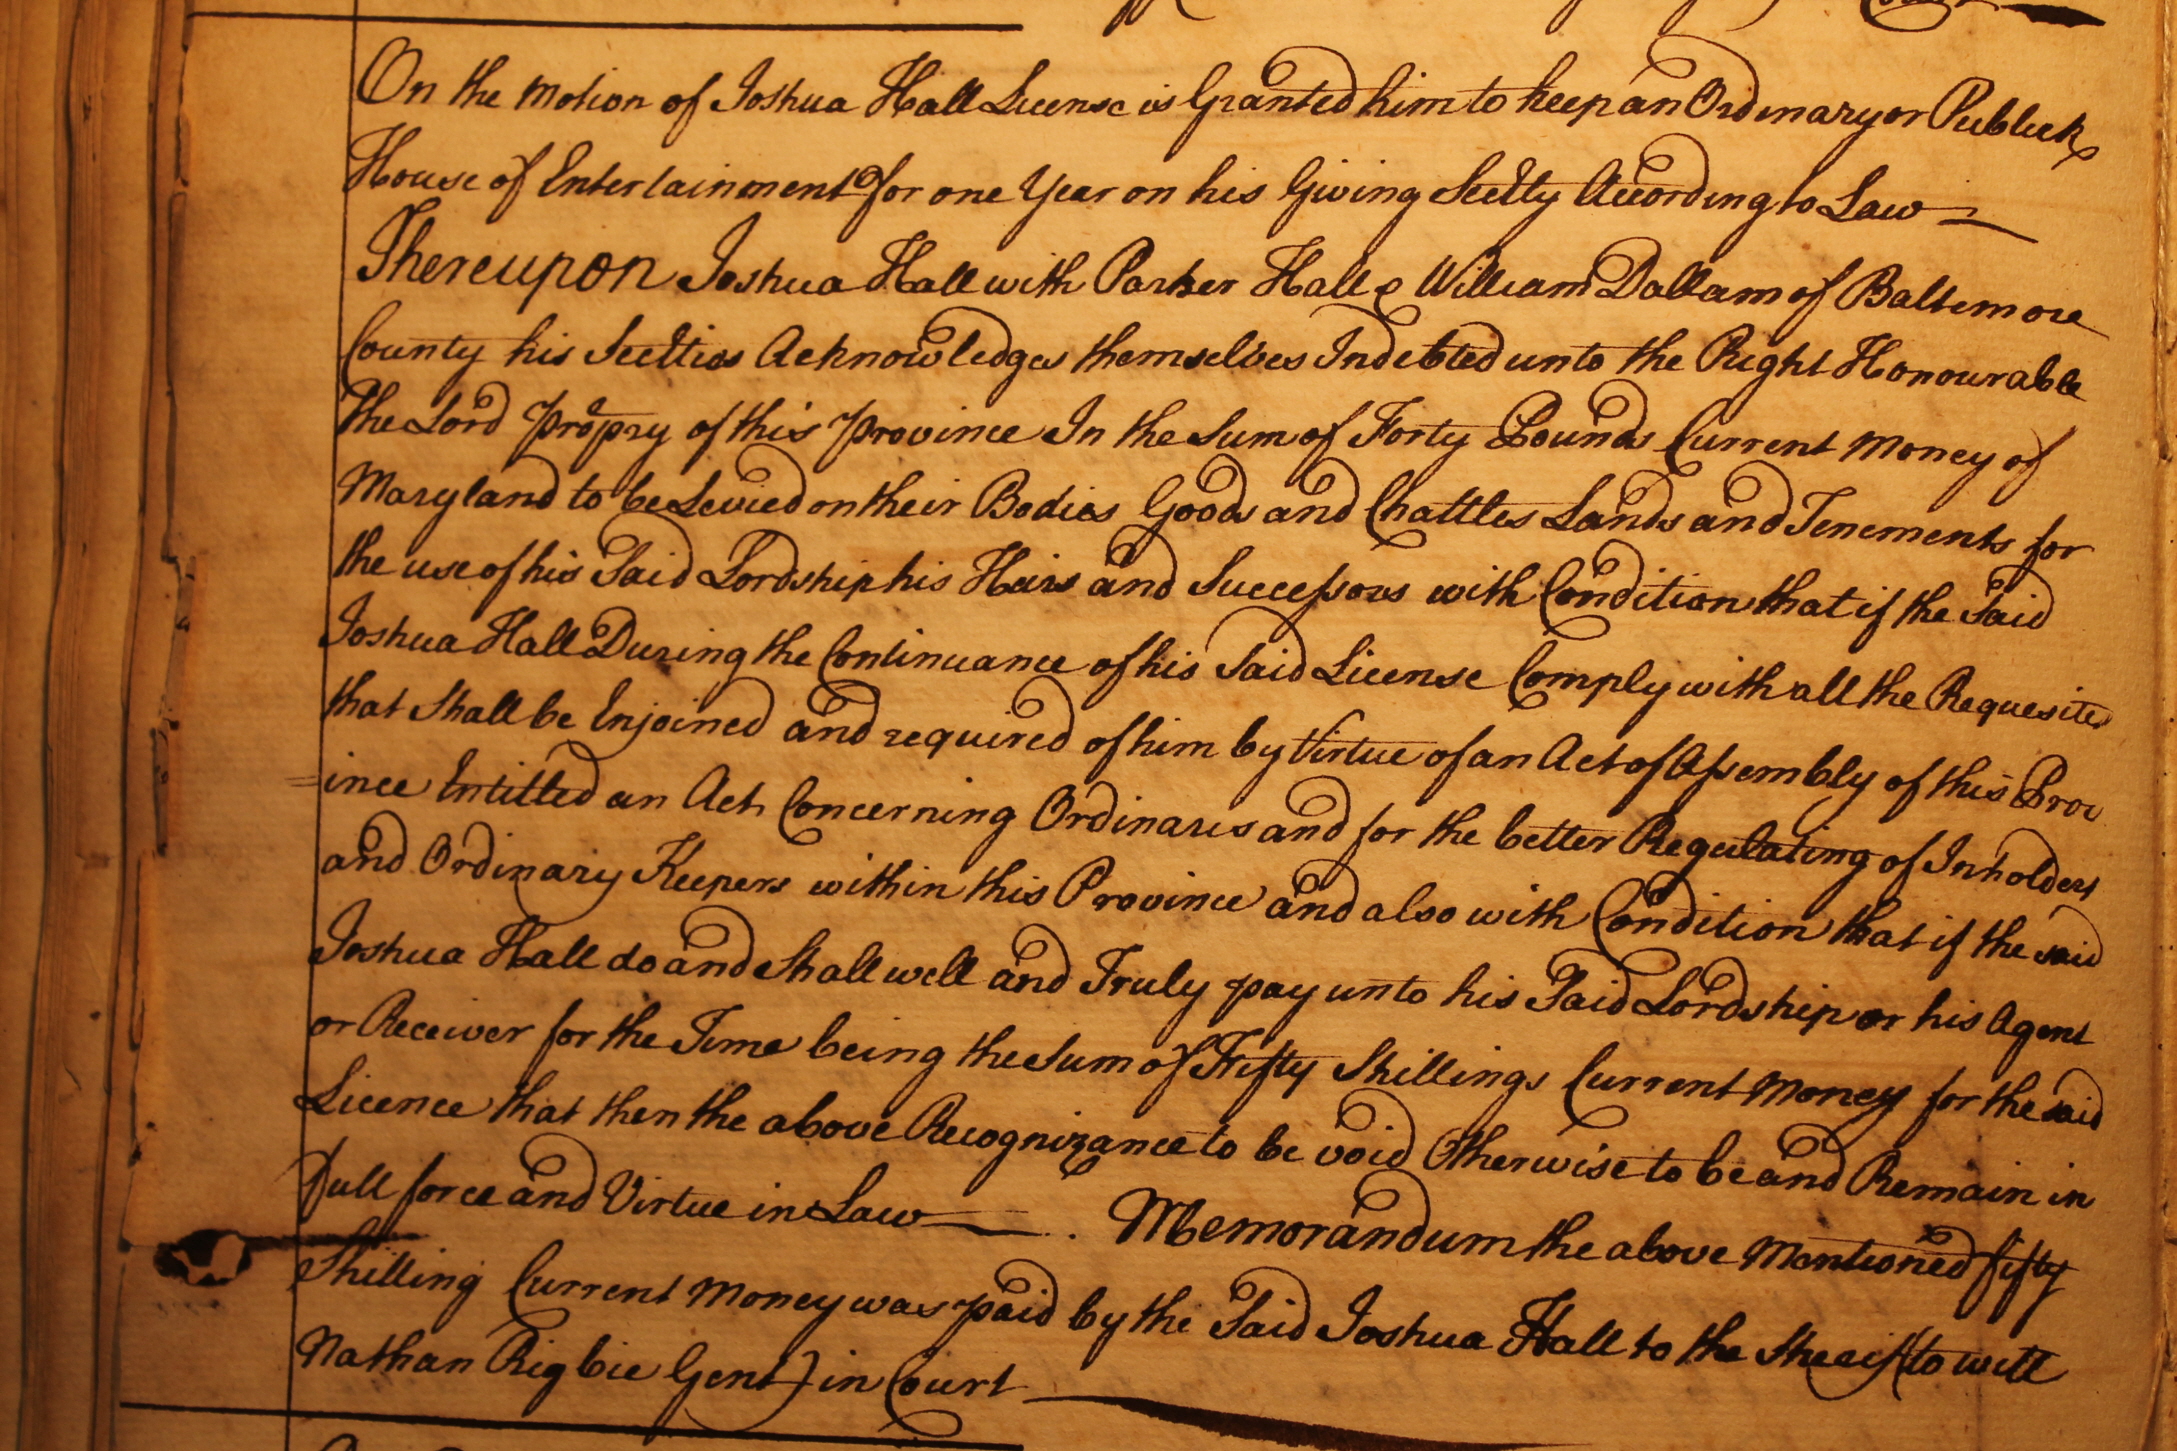 On the Motion of Joshua Hall License is Granted him to keep an Ordinary or Publick
House of Entertainment for one Year on his Giving Secßty According to Law
Thereupon Joshua Hall with Parker Hall & William Dallam of Baltemore
County his Secßties Acknowledges themselves Indebted unto the Right Honourable
The Lord Propry of this Province In the Sum of Forty Pounds Current Money of
Maryland to be Levied on their Bodies Goods and Chattles Lands and Tenements for
the use of his Said Lordship his Heirs and Successors with Condition that if the Said
Joshua Hall During the Continuance of his Said License Comply with all the Requesites
that Shall be Enjoined and required of him by Virtue of an Act of Assembly of this Prov
=ince Entitled an Act Concerning Ordinaris and for the better Regulating of Inholders
and Ordinary Keepers within this Province and also with Condition that if the said
Joshua Hall do and Shall well and Truly pay unto his Said Lordship or his Agent
or Receiver for the Time being the Sum of Fifty Shillings Current Money for the said
Licence that then the above Recognizance to be void Otherwise to be and Remain in
full force and Virtue in Law Memorandum the above Mentioned fifty
Shilling Current Money was paid by the Said Joshua Hall to the Sherif (to witt
Nathan Rigbie Gent) in Court